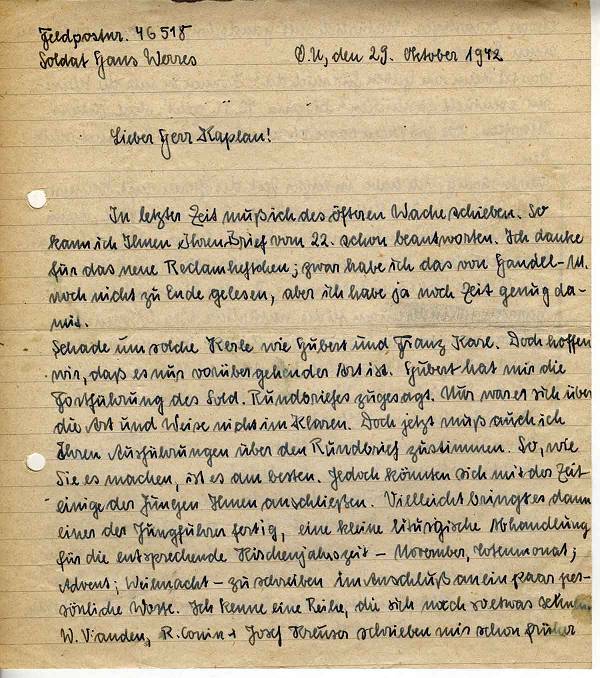 Feldpostnr. 46518
Soldat Hans Werres O.U, den 29. Oktober 1942
Lieber Herr Kaplan!
In letzter Zeit muß ich des öfteren Wache schieben. So
kann ich Ihnen Ihren Brief vom 22. schon beantworten. Ich danke
für das neue Reclamheftchen; zwar habe ich das von Handel-M.
noch nicht zu Ende gelesen, aber ich habe ja noch Zeit genug da-
mit.
Schade um solche Kerle wie Hubert und Franz Karl. Doch hoffen
wir, daß es nur vorübergehender Art ist. Hubert hat mir die
Fortführung des Sold. Rundbriefes zugesagt. Nur war er sich über
die Art und Weise nicht im Klaren. Doch jetzt muß auch ich
Ihren Ausführungen über den Rundbrief zustimmen. So, wie
Sie es machen, ist es am besten. Jedoch könnten sich mit der Zeit
einige der Jungen Ihnen anschließen. Vielleicht bringt es dann
einer der Jungführer fertig, eine kleine liturgische Abhandlung
für die entsprechende Kirchenjahrszeit - November, Totenmonat;
Advent; Weihnacht - zu schreiben im Anschluß an ein paar per-
sönliche Worte. Ich kenne eine Reihe, die sich nach so etwas sehnen.
W. Vianden, R. Conin + Josef Kreuser schrieben mir schon früher